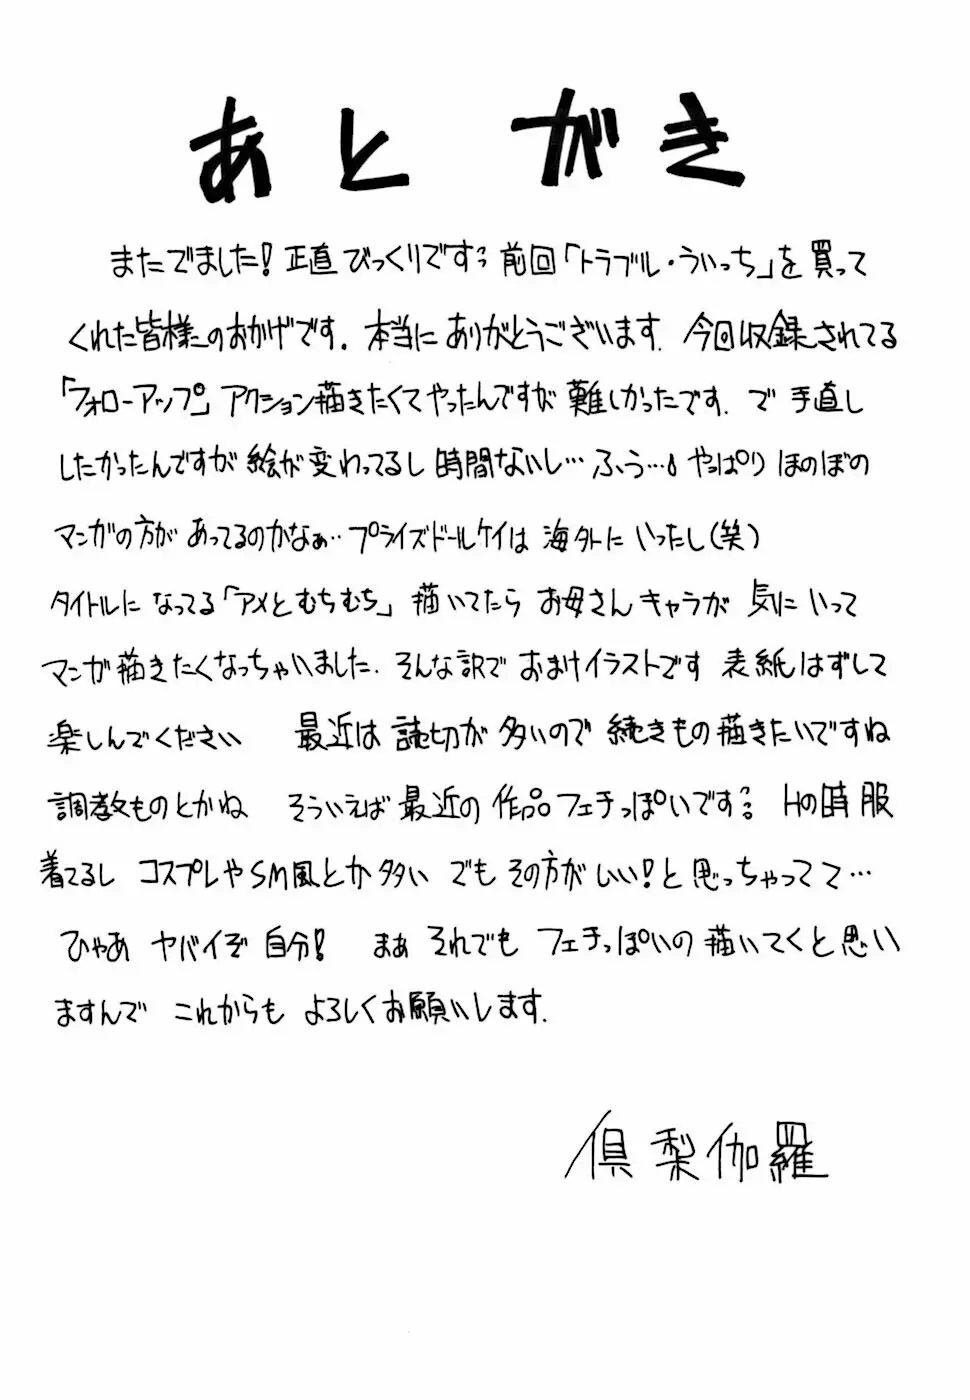 あとがき
またでました!正直びっくりです 前回「トラブル・ういっち」を買って
くれた皆様のおかげです。本当にありがとうございます. 今回収録されてる
「フォローアップ」アクション描きたくてやったんですが難しかったです. で 手直し
したかったんですが絵が変わってるし時間ないし…ふう… やっぱり ほのぼの
マンガの方が あってるのかなぁ… プライズドールケイは 海外に いったし(笑)
タイトルに なってる「アメとむちむち」描いてたら お母さんキャラが 気にいって
マンガ描きたくなっちゃいました. そんな訳で おまけイラストです 表紙はずして
楽しんでください 最近は 読切が多いので 続きもの描きたいですね
調教ものとかね そういえば最近の 作品フェチっぽいです Hの時服
着てるし コスプレやSM風とか多い でも その方がいい!と思っちゃってて…
ひゃあ ヤバイぞ 自分! まぁ それでも フェチっぽいの 描いてくと思い
ますんで これからも よろしくお願いします.
倶梨伽羅